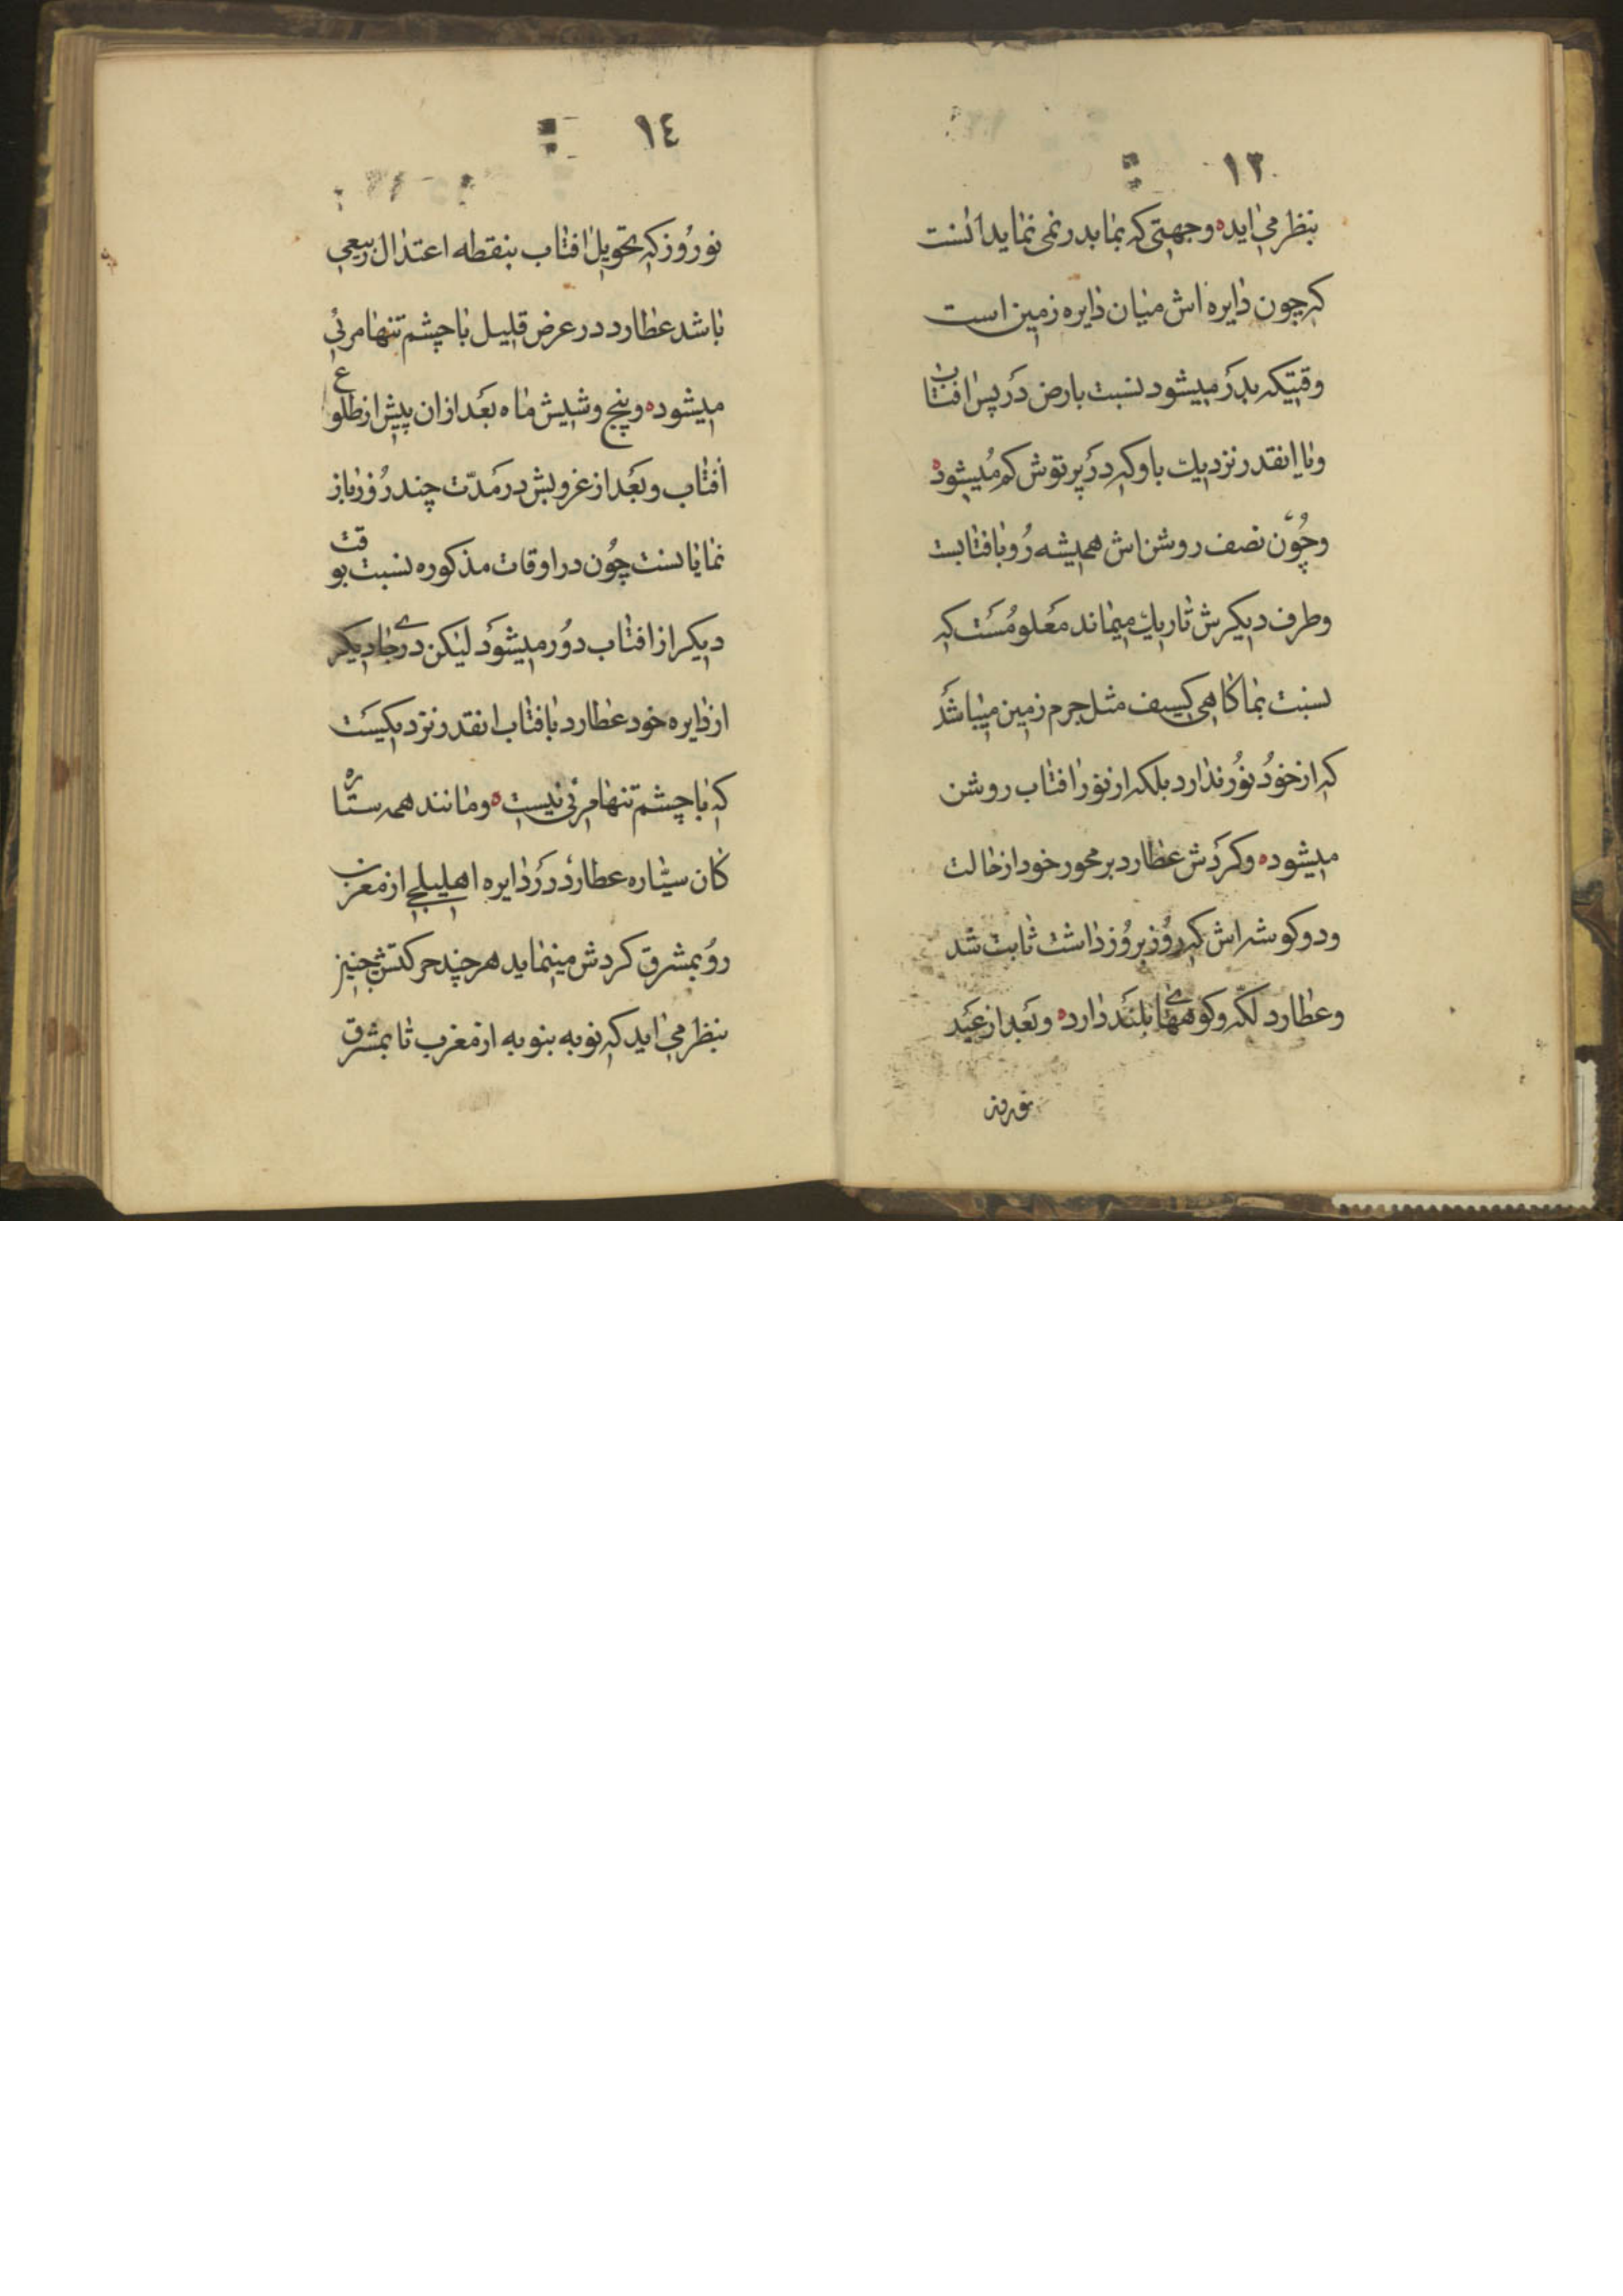 ١٣
بنظر می اید ه وجهتی که بما بدر نمی نماید انست
که چون دایره اش میان دایره زمین است
وقتیکه بدر میشود نسبت بارض در پس افتاب
و یا انقدر نزدیك باو که در پرتوش کم میشود ه
و چون نصف روشن اش همیشه رو بافتابست
و طرف دیکرش تاریك میماند معلومست که
نسبت بما کاهی کسف مثل جرم زمین میباشد
که از خود نور ندارد بلکه از نور افتاب روشن
میشود ه و کردش عطارد بر محور خود از حالت
و دو کوشه اش که روز بروز داشت ثابت شد
و عطارد لکه و کوههای بلند دارد ه و بعد از عید
نوروز
١٤
نوروز که تحویل افتاب بنقطه اعتدال ربیعی
باشد عطارد در عرض قلیل با چشم تنها مرئی
میشود ه و پنج و شیش ماه بعد ازان پیش از طلوع
افتاب و بعد از غروبش در مدّت چند روز باز
نمایانست چون در اوقات مذکوره نسبت بوقت
دیکر از افتاب دور میشود لیکن در جای دیکر
از دایره خود عطارد بافتاب انقدر نزدیکیست
که با چشم تنها مرئی نیست ه و مانند همه ستاره
کان سیّاره عطارد در دایره اهلیلجی از مغرب
رو بمشرق کردش مینماید هر چند حرکتش چنیز
بنظر می اید که نوبه بنوبه از مغرب تا بمشرق